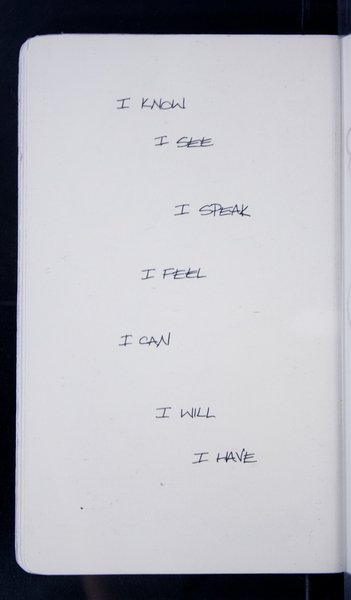 I KNOW
I SEE
I SPEAK
I FEEL
I CAN
I WILL
I HAVE